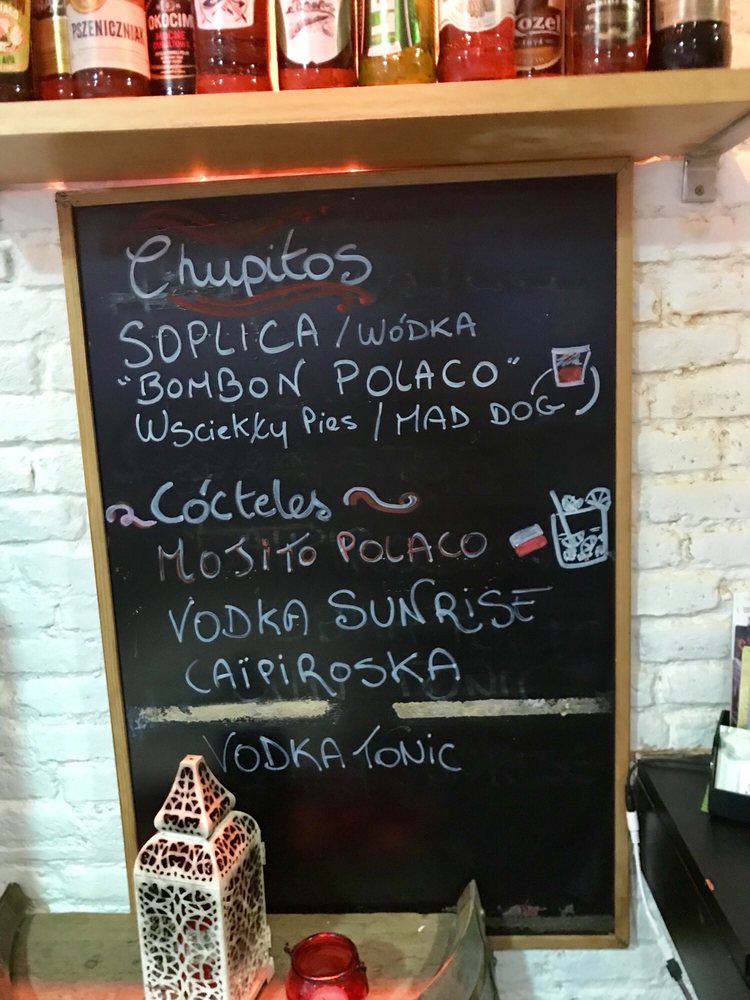 PSZENICZNIAK
OKOCIM
MOCNE
Kozel
Chupitos
SOPLICA / WÓDKA
"BOMBON POLACO"
Wściekły Pies / MAD DOG
Cócteles
MOJITO POLACO
VODKA SUNRISE
CAÏPIROSKA
VODKA TONIC